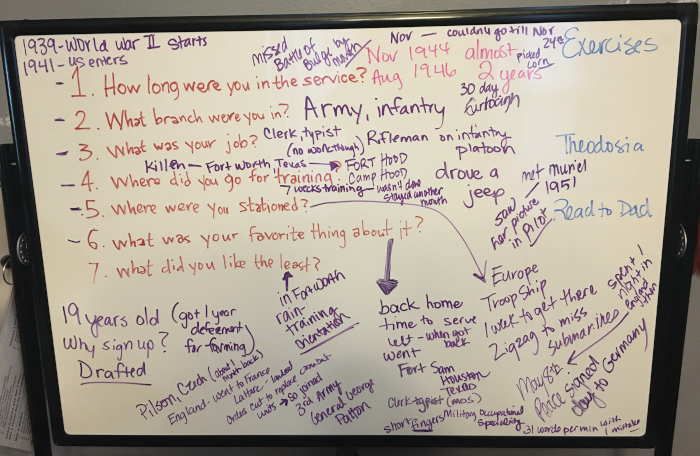 1939-World War II starts
1941-US enters
missed
Battle of
Bulge by
Nov — couldn't go till Nov
24th
picked
corn
Exercises
- 1. How long were you in the service?
Nov 1944 almost
Aug 1946 2 years
30 day
furlough
- 2. What branch were you in? Army, infantry
- 3. What was your job? Clerk, typist
(no work though)
Rifleman on infantry
platoon
Theodosia
Killen — Fort Worth Texas → FORT HOOD
Camp HOOD
- 4. Where did you go for training?
7 weeks training — wasn't done
stayed another
month
drove a
jeep
met muriel
1951
saw
her picture
in Pilot
Read to Dad
- 5. Where were you stationed?
- 6. What was your favorite thing about it?
7. What did you like the least?
in Fort Worth
rain-
training
orientation
Europe
Troop Ship
1 week to get there
Zigzag to miss
submarines
spent 1
night in
england
then
May 8th
Peace signed
day to Germany
back home
time to serve
left - when got
back
went
Fort Sam
Houston
Texas
Clerk typist (mos)
Military Occupational
Speciality
short fingers
31 words per min with
1 mistake
19 years old (got 1 year
deferment
for farming)
Why sign up?
Drafted
Pilsen, Czech (about 1
month back)
England - went to France
LaHarve - landed
orders cut to replace combat
units → so joined
3rd Army
General George
Patton